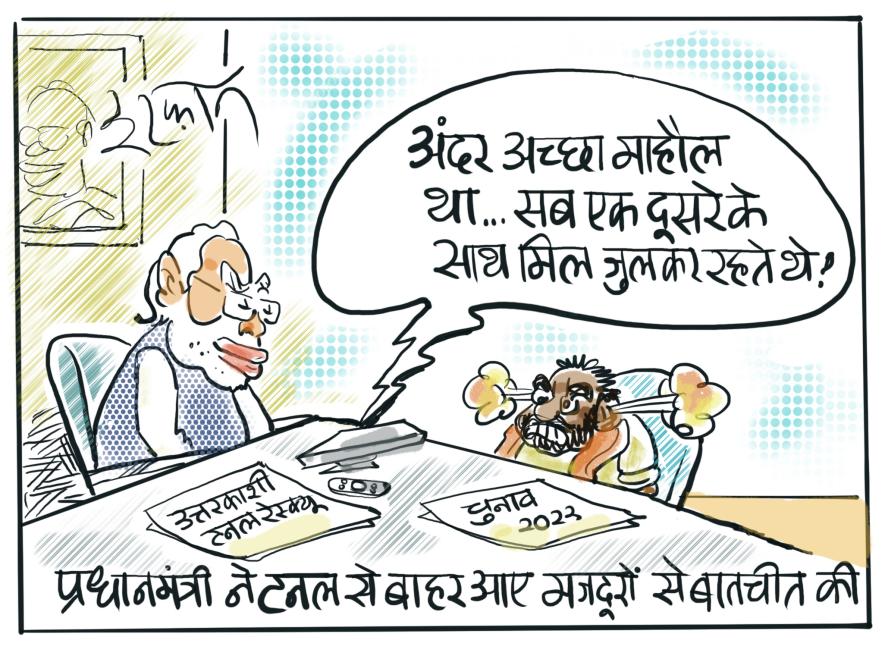 अंदर अच्छा माहौल
था... सब एक दूसरे के
साथ मिल जुलकर रहते थे!
उत्तरकाशी
टनल रेस्क्यू
चुनाव
2023
प्रधानमंत्री ने टनल से बाहर आए मजदूरों से बातचीत की